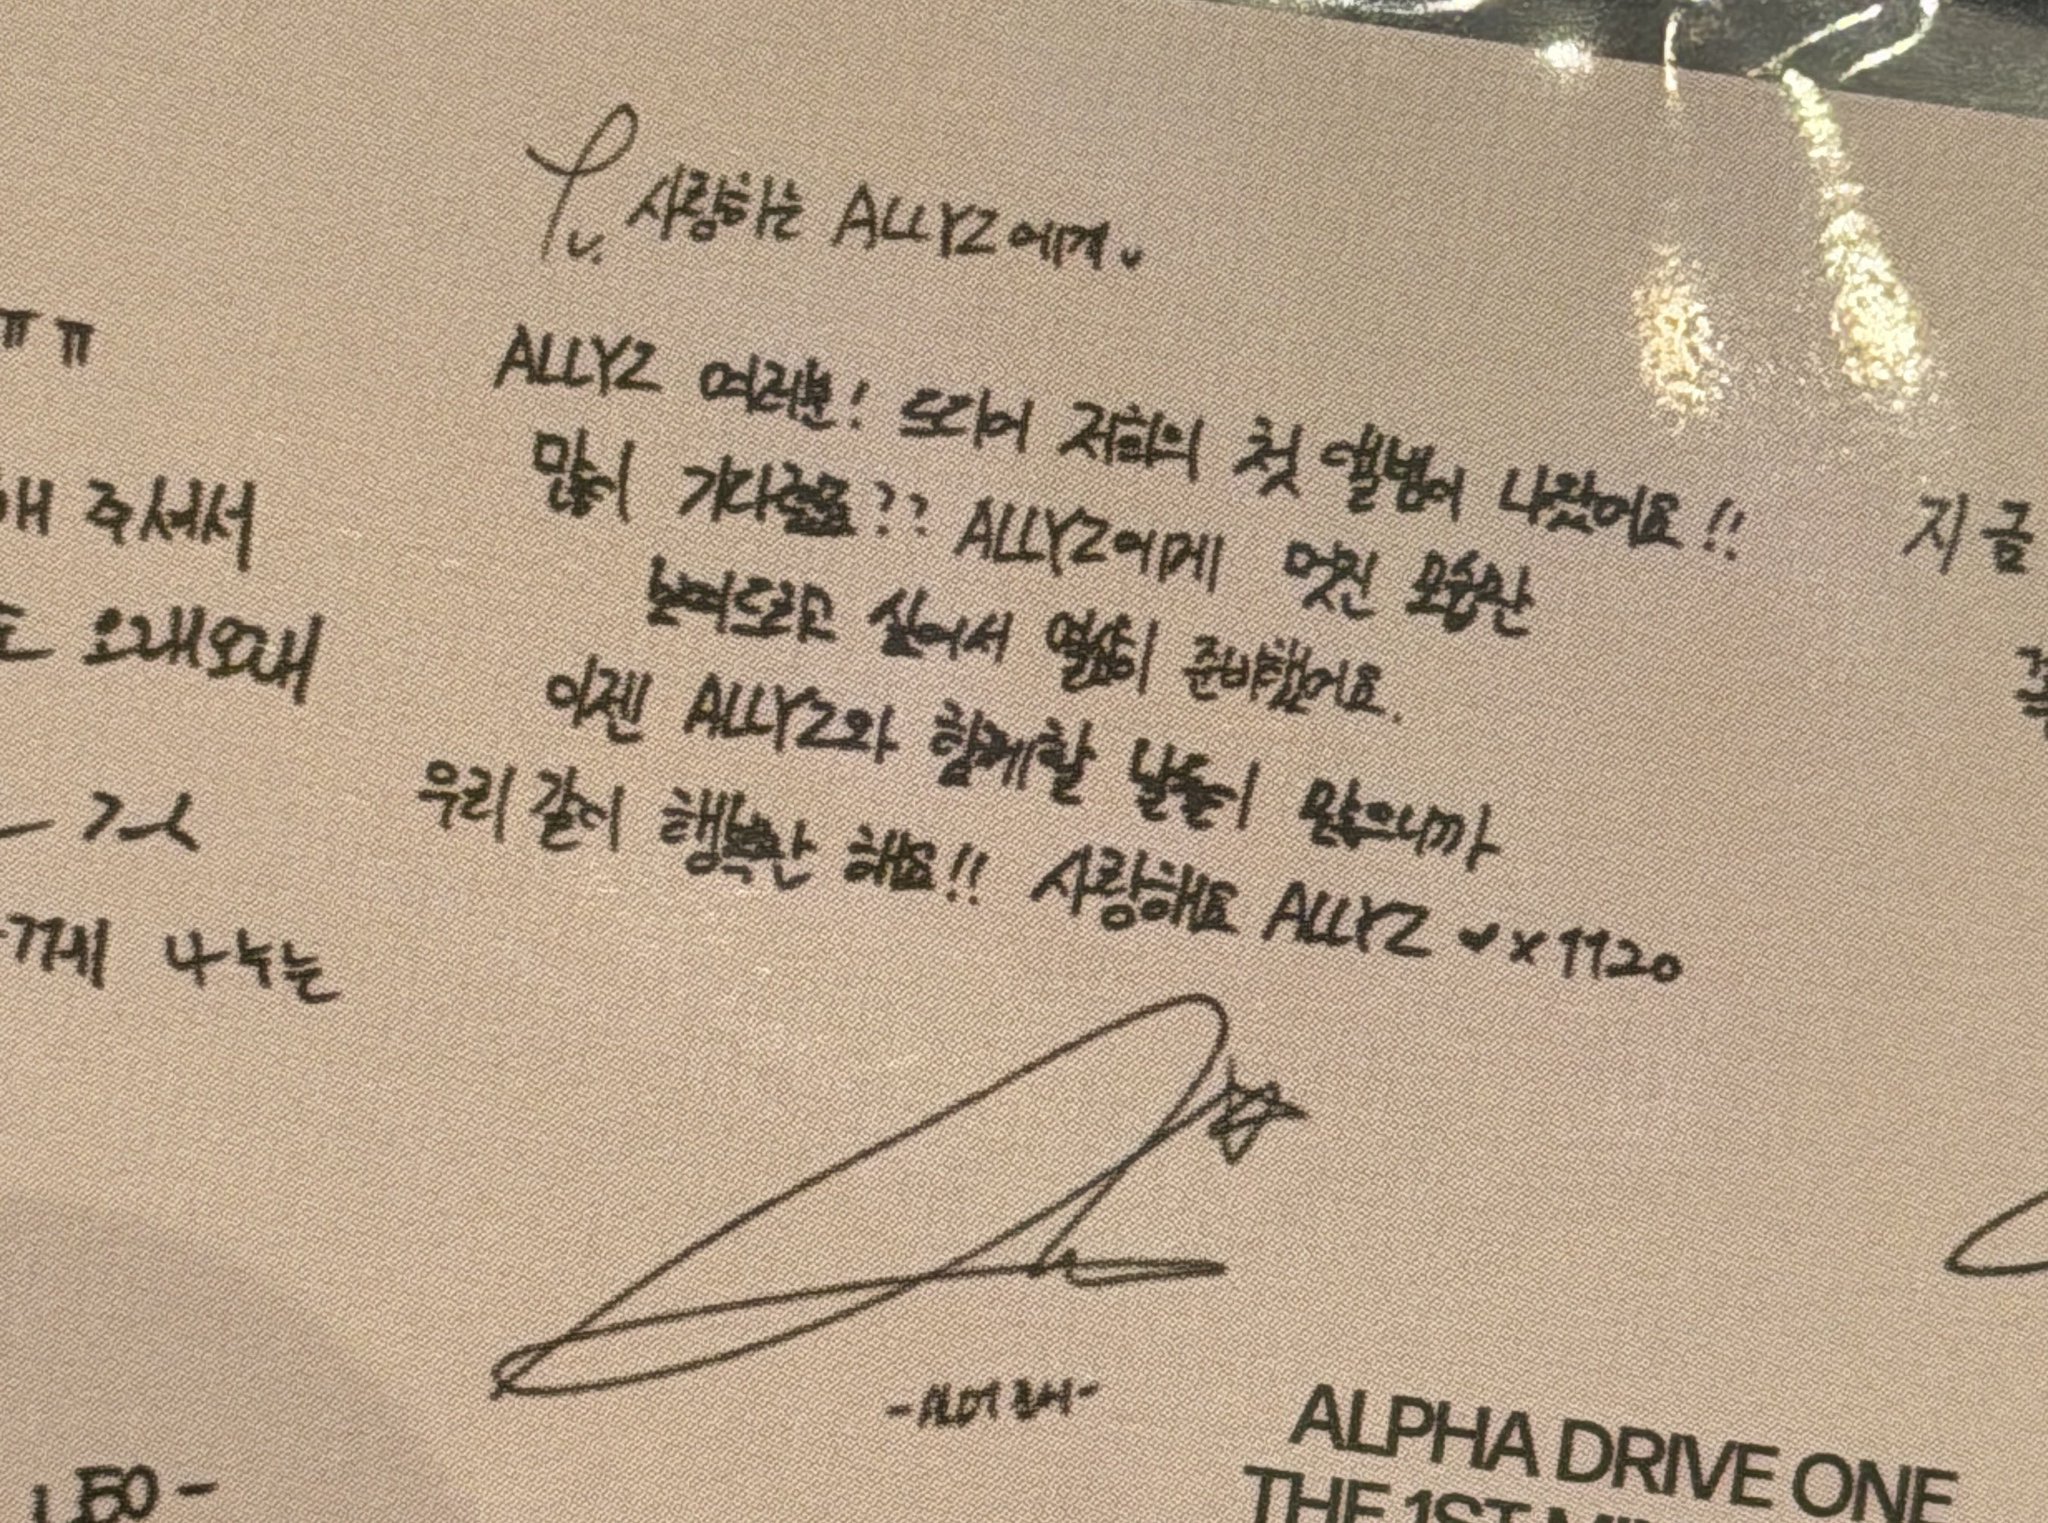 To. 사랑하는 ALLYZ에게
ALLYZ 여러분! 드디어 저희의 첫 앨범이 나왔어요!!
많이 기다렸죠?? ALLYZ에게 멋진 모습만
보여드리고 싶어서 열심히 준비했어요.
이젠 ALLYZ와 함께할 날들이 많으니까
우리 같이 행복만 해요!! 사랑해요 ALLYZ ♥×1120
ㅠㅠ
해 주셔서
도 오래오래
것
게 나누는
LEO-
지금
ALPHA DRIVE ONE
THE 1ST